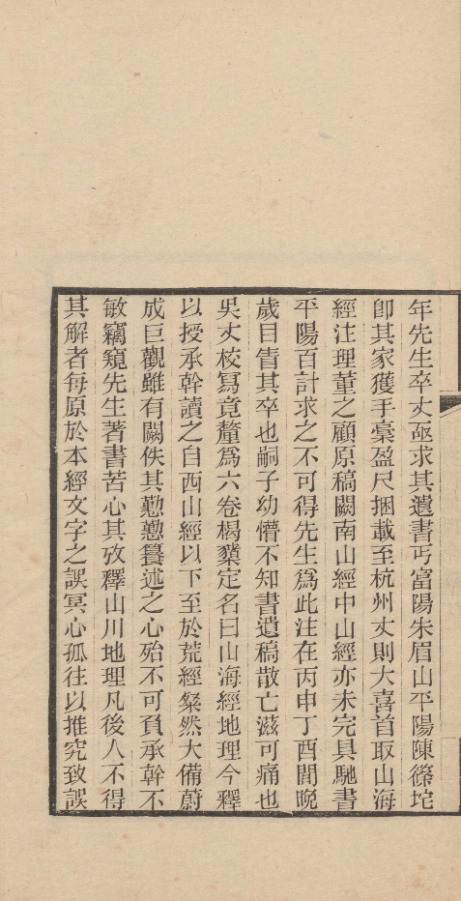 年先生卒丈亟求其遺書丐富陽朱眉山平陽陳篠垞
卽其家獲手稾盈尺捆載至杭州丈則大喜首取山海
經注理董之顧原稿闕南山經中山經亦未完具馳書
平陽百計求之不可得先生爲此注在丙申丁酉間晩
歲目眚其卒也嗣子幼懵不知書遺稿散亡滋可痛也
吳丈校寫竟釐爲六卷楬櫫定名曰山海經地理今釋
以授承幹讀之自西山經以下至於荒經粲然大備蔚
成巨觀雖有闕佚其懃懃籑述之心殆不可負承幹不
敏竊窺先生著書苦心其攷釋山川地理凡後人不得
其解者每原於本經文字之誤冥心孤往以推究致誤